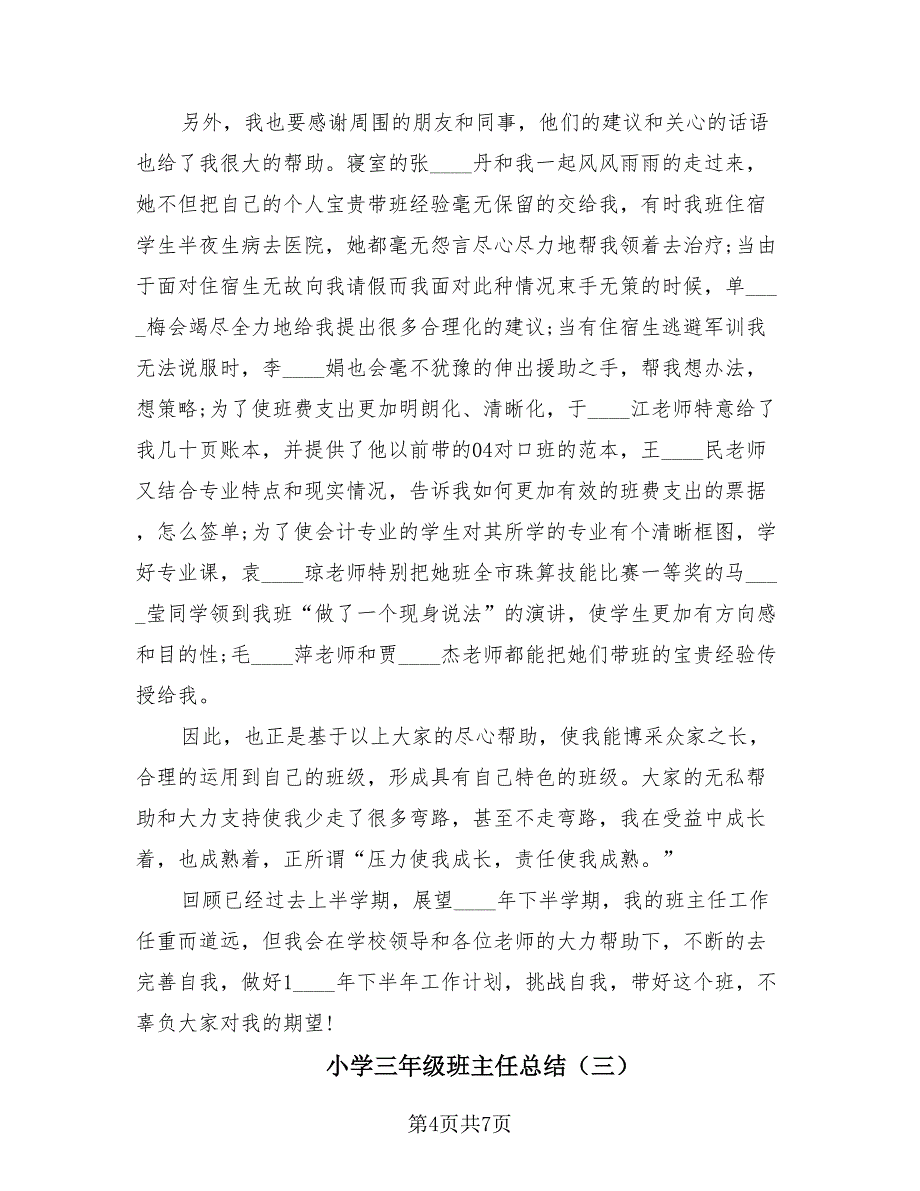 另外，我也要感谢周围的朋友和同事，他们的建议和关心的话语
也给了我很大的帮助。寝室的张____丹和我一起风风雨雨的走过来，
她不但把自己的个人宝贵带班经验毫无保留的交给我，有时我班住宿
学生半夜生病去医院，她都毫无怨言尽心尽力地帮我领着去治疗;当由
于面对住宿生无故向我请假而我面对此种情况束手无策的时候，单___
_梅会竭尽全力地给我提出很多合理化的建议;当有住宿生逃避军训我
无法说服时，李____娟也会毫不犹豫的伸出援助之手，帮我想办法，
想策略;为了使班费支出更加明朗化、清晰化，于____江老师特意给了
我几十页账本，并提供了他以前带的04对口班的范本，王____民老师
又结合专业特点和现实情况，告诉我如何更加有效的班费支出的票据
，怎么签单;为了使会计专业的学生对其所学的专业有个清晰框图，学
好专业课，袁____琼老师特别把她班全市珠算技能比赛一等奖的马___
_莹同学领到我班“做了一个现身说法”的演讲，使学生更加有方向感
和目的性;毛____萍老师和贾____杰老师都能把她们带班的宝贵经验传
授给我。
因此，也正是基于以上大家的尽心帮助，使我能博采众家之长，
合理的运用到自己的班级，形成具有自己特色的班级。大家的无私帮
助和大力支持使我少走了很多弯路，甚至不走弯路，我在受益中成长
着，也成熟着，正所谓“压力使我成长，责任使我成熟。”
回顾已经过去上半学期，展望____年下半学期，我的班主任工作
任重而道远，但我会在学校领导和各位老师的大力帮助下，不断的去
完善自我，做好1____年下半年工作计划，挑战自我，带好这个班，不
辜负大家对我的期望!
小学三年级班主任总结（三）
第4页共7页